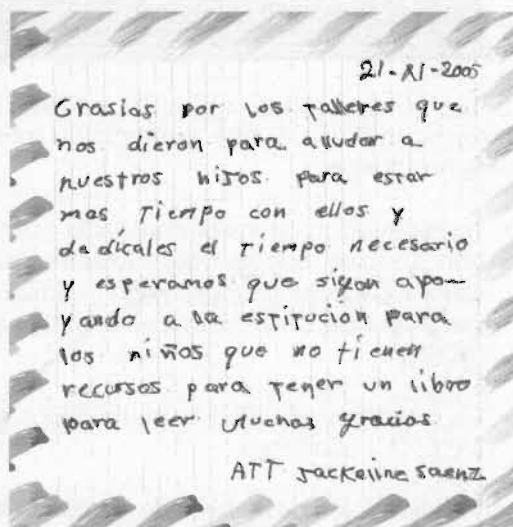 21-XI-2005
Grasias por los talleres que
nos dieron para alludar a
nuestros hijos para estar
mas tiempo con ellos y
dedicales el tiempo necesario
y esperamos que sigan apo-
yando a la estitucion para
los niños que no tienen
recursos para tener un libro
para leer Muchas gracias
ATT Jackeline Saenz